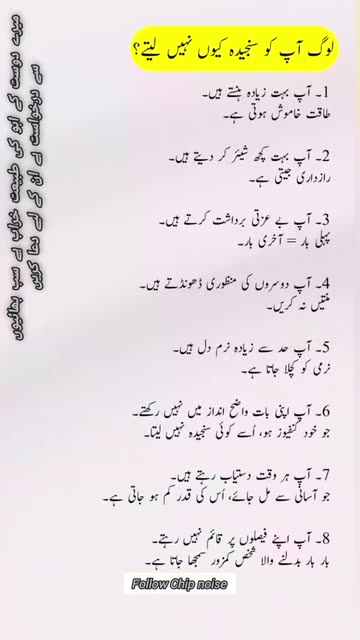 لوگ آپ کو سنجیدہ کیوں نہیں لیتے؟
1۔ آپ بہت زیادہ ہنستے ہیں۔
طاقت خاموش ہوتی ہے۔
2۔ آپ بہت کچھ شیئر کر دیتے ہیں۔
رازداری جیتی ہے۔
3۔ آپ بے عزتی برداشت کرتے ہیں۔
پہلی بار = آخری بار۔
4۔ آپ دوسروں کی منظوری ڈھونڈتے ہیں۔
منتیں نہ کریں۔
5۔ آپ حد سے زیادہ نرم دل ہیں۔
نرمی کو کچلا جاتا ہے۔
6۔ آپ اپنی بات واضح انداز میں نہیں رکھتے۔
جو خود کنفیوز ہو، اُسے کوئی سنجیدہ نہیں لیتا۔
7۔ آپ ہر وقت دستیاب رہتے ہیں۔
جو آسانی سے مل جائے، اُس کی قدر کم ہو جاتی ہے۔
8۔ آپ اپنے فیصلوں پر قائم نہیں رہتے۔
بار بار بدلنے والا شخص کمزور سمجھا جاتا ہے۔
Follow Chip noise
میرے دوست کے ابو کی طبیعت خراب ہے سب بھائیوں
سے درخواست ہے ان کے لیے دعا کریں